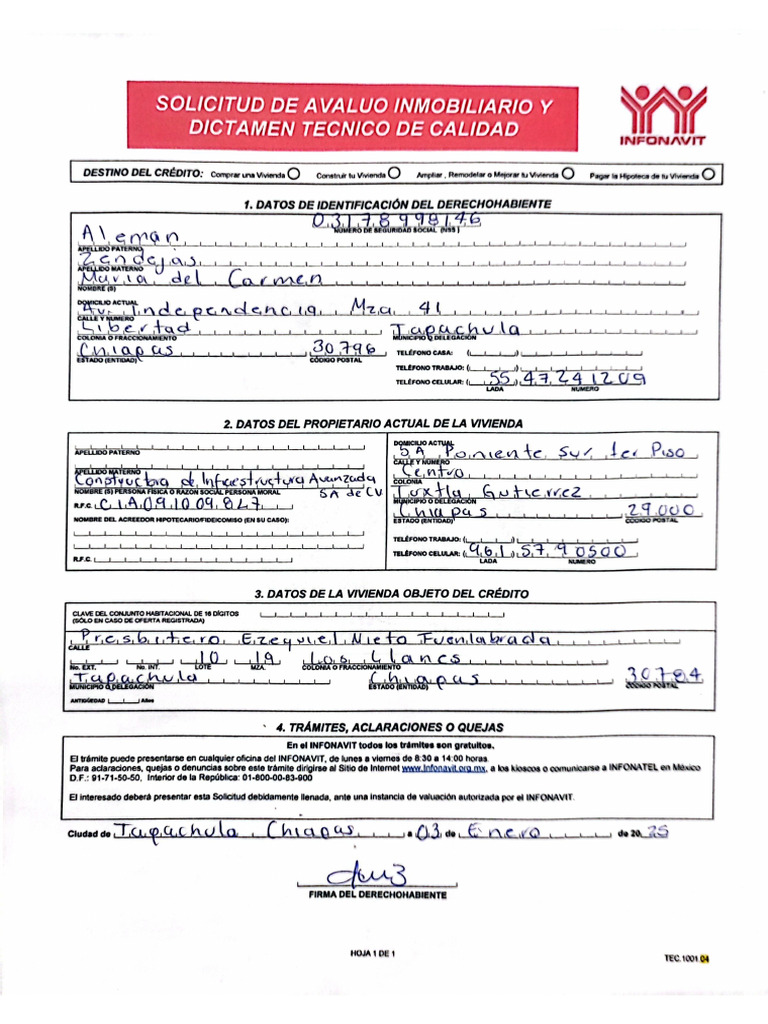 SOLICITUD DE AVALUO INMOBILIARIO Y
DICTAMEN TECNICO DE CALIDAD
INFONAVIT
DESTINO DEL CRÉDITO: Comprar una Vivienda Construir tu Vivienda Ampliar, Remodelar o Mejorar tu Vivienda Pagar la Hipoteca de tu Vivienda
1. DATOS DE IDENTIFICACIÓN DEL DERECHOHABIENTE
03178998146
NÚMERO DE SEGURIDAD SOCIAL (NSS)
Alemán
APELLIDO PATERNO
Zendejas
APELLIDO MATERNO
Maria del Carmen
NOMBRE (S)
DOMICILIO ACTUAL
Av. Independencia Mza 41
CALLE Y NUMERO
Libertad Tapachula
COLONIA O FRACCIONAMIENTO MUNICIPIO O DELEGACIÓN
Chiapas 30796 TELÉFONO CASA:
ESTADO (ENTIDAD) CÓDIGO POSTAL
TELÉFONO TRABAJO:
TELÉFONO CELULAR: 55 47241209
LADA NUMERO
2. DATOS DEL PROPIETARIO ACTUAL DE LA VIVIENDA
APELLIDO PATERNO
APELLIDO MATERNO
Constructora de Infraestructura Avanzada
NOMBRE (S) PERSONA FISICA O RAZON SOCIAL PERSONA MORAL
SA de CV
R.F.C. CIA091009847
NOMBRE DEL ACREEDOR HIPOTECARIO/FIDEICOMISO (EN SU CASO):
R.F.C.
DOMICILIO ACTUAL
5A Poniente Sur 1er Piso
CALLE Y NUMERO
Centro
COLONIA
Tuxtla Gutierrez
MUNICIPIO O DELEGACIÓN
Chiapas 29.000
ESTADO (ENTIDAD) CÓDIGO POSTAL
TELÉFONO TRABAJO:
TELÉFONO CELULAR: 961 5790500
LADA NUMERO
3. DATOS DE LA VIVIENDA OBJETO DEL CRÉDITO
CLAVE DEL CONJUNTO HABITACIONAL DE 16 DÍGITOS
(SÓLO EN CASO DE OFERTA REGISTRADA)
Presbitero Ezequiel Nieto Fuenlabrada
CALLE
10 19 Los Llanes
No. EXT. No. INT. LOTE MZA. COLONIA O FRACCIONAMIENTO
Tapachula Chiapas 30784
MUNICIPIO O DELEGACIÓN ESTADO (ENTIDAD) CÓDIGO POSTAL
ANTIGÜEDAD Años
4. TRÁMITES, ACLARACIONES O QUEJAS
En el INFONAVIT todos los trámites son gratuitos.
El trámite puede presentarse en cualquier oficina del INFONAVIT, de lunes a viernes de 8:30 a 14:00 horas.
Para aclaraciones, quejas o denuncias sobre este trámite dirigirse al Sitio de Internet www.Infonavit.org.mx, a los kioscos o comunicarse a INFONATEL en México
D.F.: 91-71-50-50, Interior de la República: 01-800-00-83-900
El interesado deberá presentar esta Solicitud debidamente llenada, ante una instancia de valuación autorizada por el INFONAVIT.
Ciudad de Tapachula Chiapas a 03 de Enero de 20 25
FIRMA DEL DERECHOHABIENTE
HOJA 1 DE 1
TEC.1001.04